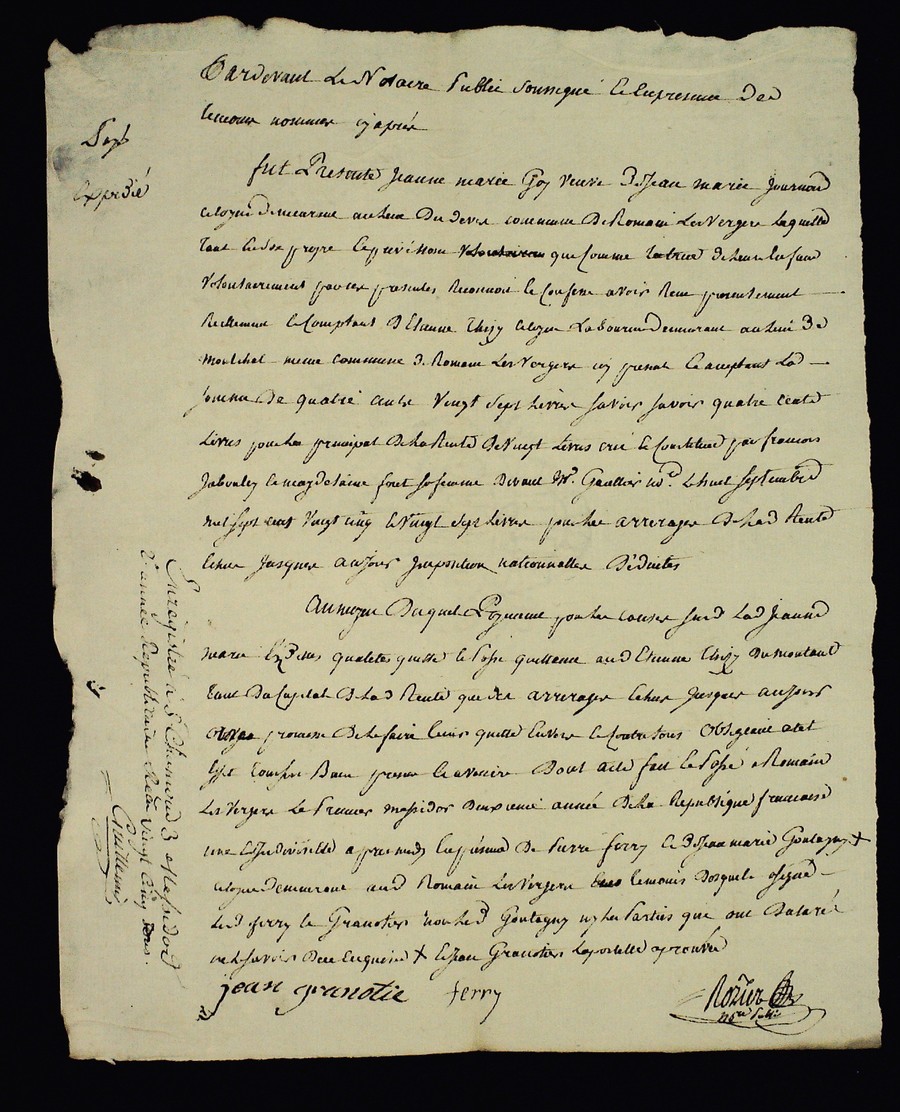 Pardevant Le Notaire Public Soussigné Et En presence Des
temoins nommés cy après
Exp
Expedié
fut Presente Jeanne marie Goy veuve De Jean marie Journoud
citoyene demeurant au lieu Du devey commune De Romain Les Vergers Laquelle
tant de Son propre Et privé nom que comme tutrice de
volontairement par ces presentes Reconnoit Et Confesse avoir Reçu presentement
Reellement Et Comptant D'Etienne Thizy citoyen Laboureur Demeurant au lieu De
Montchal meme commune De Romain Les Vergers cy present Et aceptant La
somme De quatre cents Vingt Sept Livres savoir savoir quatre Cents
Livres pour Le principal De La Rente De Vingt Livres créé Et Constituée par francois
Jabouley Et magdelaine foret sa femme Devant Mr. Gaultier no.re Le huit Septembre
mil sept cent Vingt cinq Et Vingt Sept Livres pour Les arrerages De Lad Rente
Echue Jusques aujour imposition nationnalles Déduites
Au moyen Duquel Payement pour Les causes Susd Lad Jeanne
marie Goy Des qualités quitte Et Passe quittance aud Etienne Thizy Du montant
tant Du Capital De Lad Rente que des arrerages Echue Jusques aujour
promesse De Le faire tenir quitte Envers Et Contre tous Obligeant a cet
Effet tous ses Biens present Et avenir Dont acte fait Et Passé a Romain
Les Vergers Le Premier messidor Deuxieme année De La Republique francaise
une Et Indivisible apres midy En presence De Pierre ferry Et De Jean marie Gontagny +
citoyens demeurant aud Romain Les Vergers temoins Desquels a signé
Led ferry Et Granotier non Led Gontagny ny Les Parties qui ont Déclaré
ne Le Savoir De ce Enquis + Et Jean Granotier La postille aprouvée
jean granotie ferry Rozier
no.re Public
Enregistrée à St Chamond 3 Messidor
2e année Républicaine Reçu Vingt Cinq sous.
Guillemin